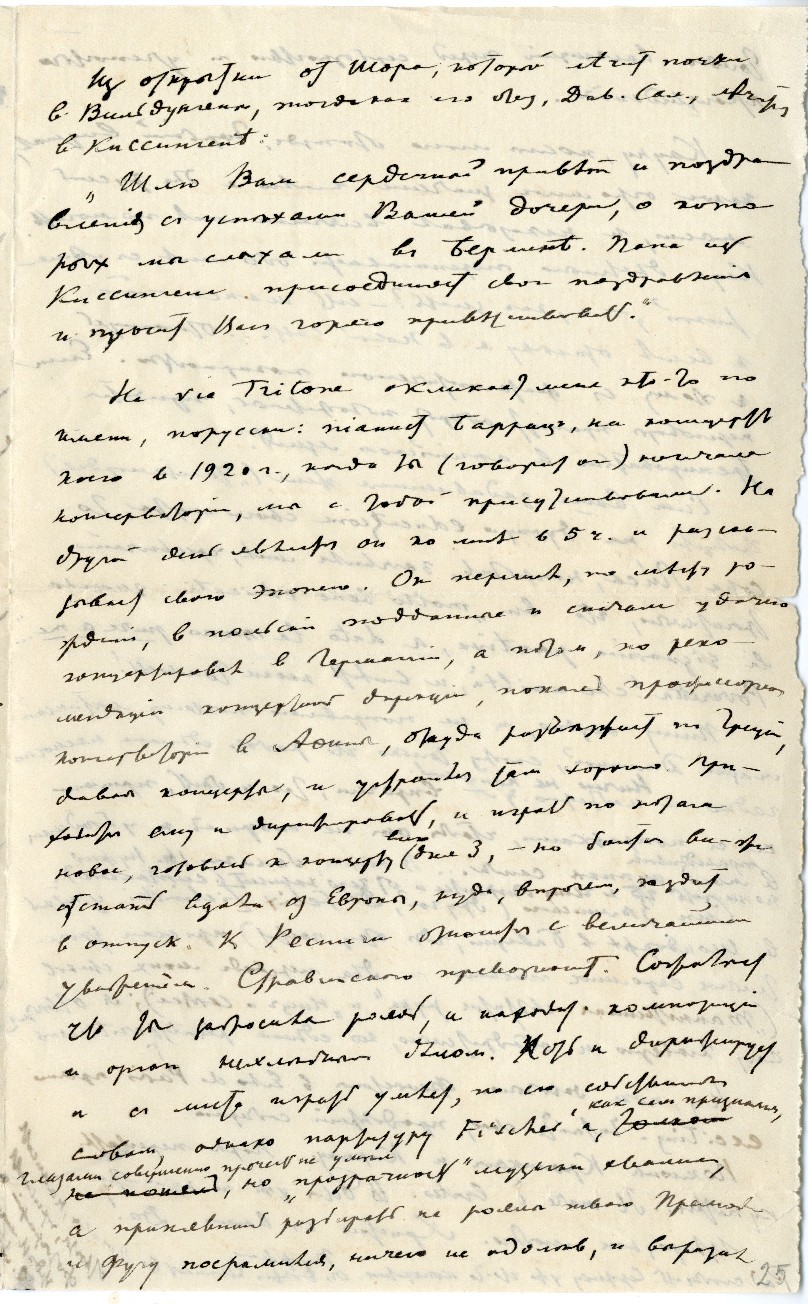 Из открытки от Шора, который лѣчит почки
в Вильдунгене, тогда как его отец, Дав. Сол., лѣчится
в Киссингенѣ:
„Шлю Вам сердечный привѣт и поздра
вления с успѣхами Вашей дочери, о кото
рых мы слыхали в Берлинѣ. Папа из
Киссингена присоединяет свои поздравленія
и просит Вас горячо привѣтствовать."
На via Tritone окликает меня кто-то по
имени, порусски: піанист Фаррац, на концертѣ
коего в 1920 г., когда ты (говорит он) кончала
консерваторію, мы с тобой присутствовали. На
другой день явился он ко мнѣ в 5 ч. и разска-
зывает свою эпопею. Он перешел, по мѣсту ро-
жденія, в польскіе подданные и сначала удачно
концертировал в Германіи, а потом, по реко-
мендаціи концертной дирекціи, попал профессором
консерваторіи в Афины, откуда разъѣзжает по Греціи,
давая концерты, и устроился там хорошо. При-
ходится ему и дирижировать, и играть по нотам
новое, готовясь к концерту дня 3, — но боится он
отстать вдали от Европы, куда, впрочем, ѣздит
в отпуск. К Респиги относится с величайшим
уваженіем. Стравинского превозносит. Сокрушается
что ты забросила рояль, и находит композицію
и орган нехлѣбным дѣлом. Хоть и дирижирует
и с листа играть умѣет, по его собственным
словам, однако партитуру Fischer'а, как сам признался,
глазами совершенно прочесть не умѣл
, но „прозрачность" музыки хвалил,
а принявшись разбирать на рояли твою Прелюдію
и Фугу посрамился, ничего не одолѣв, и выразил
25